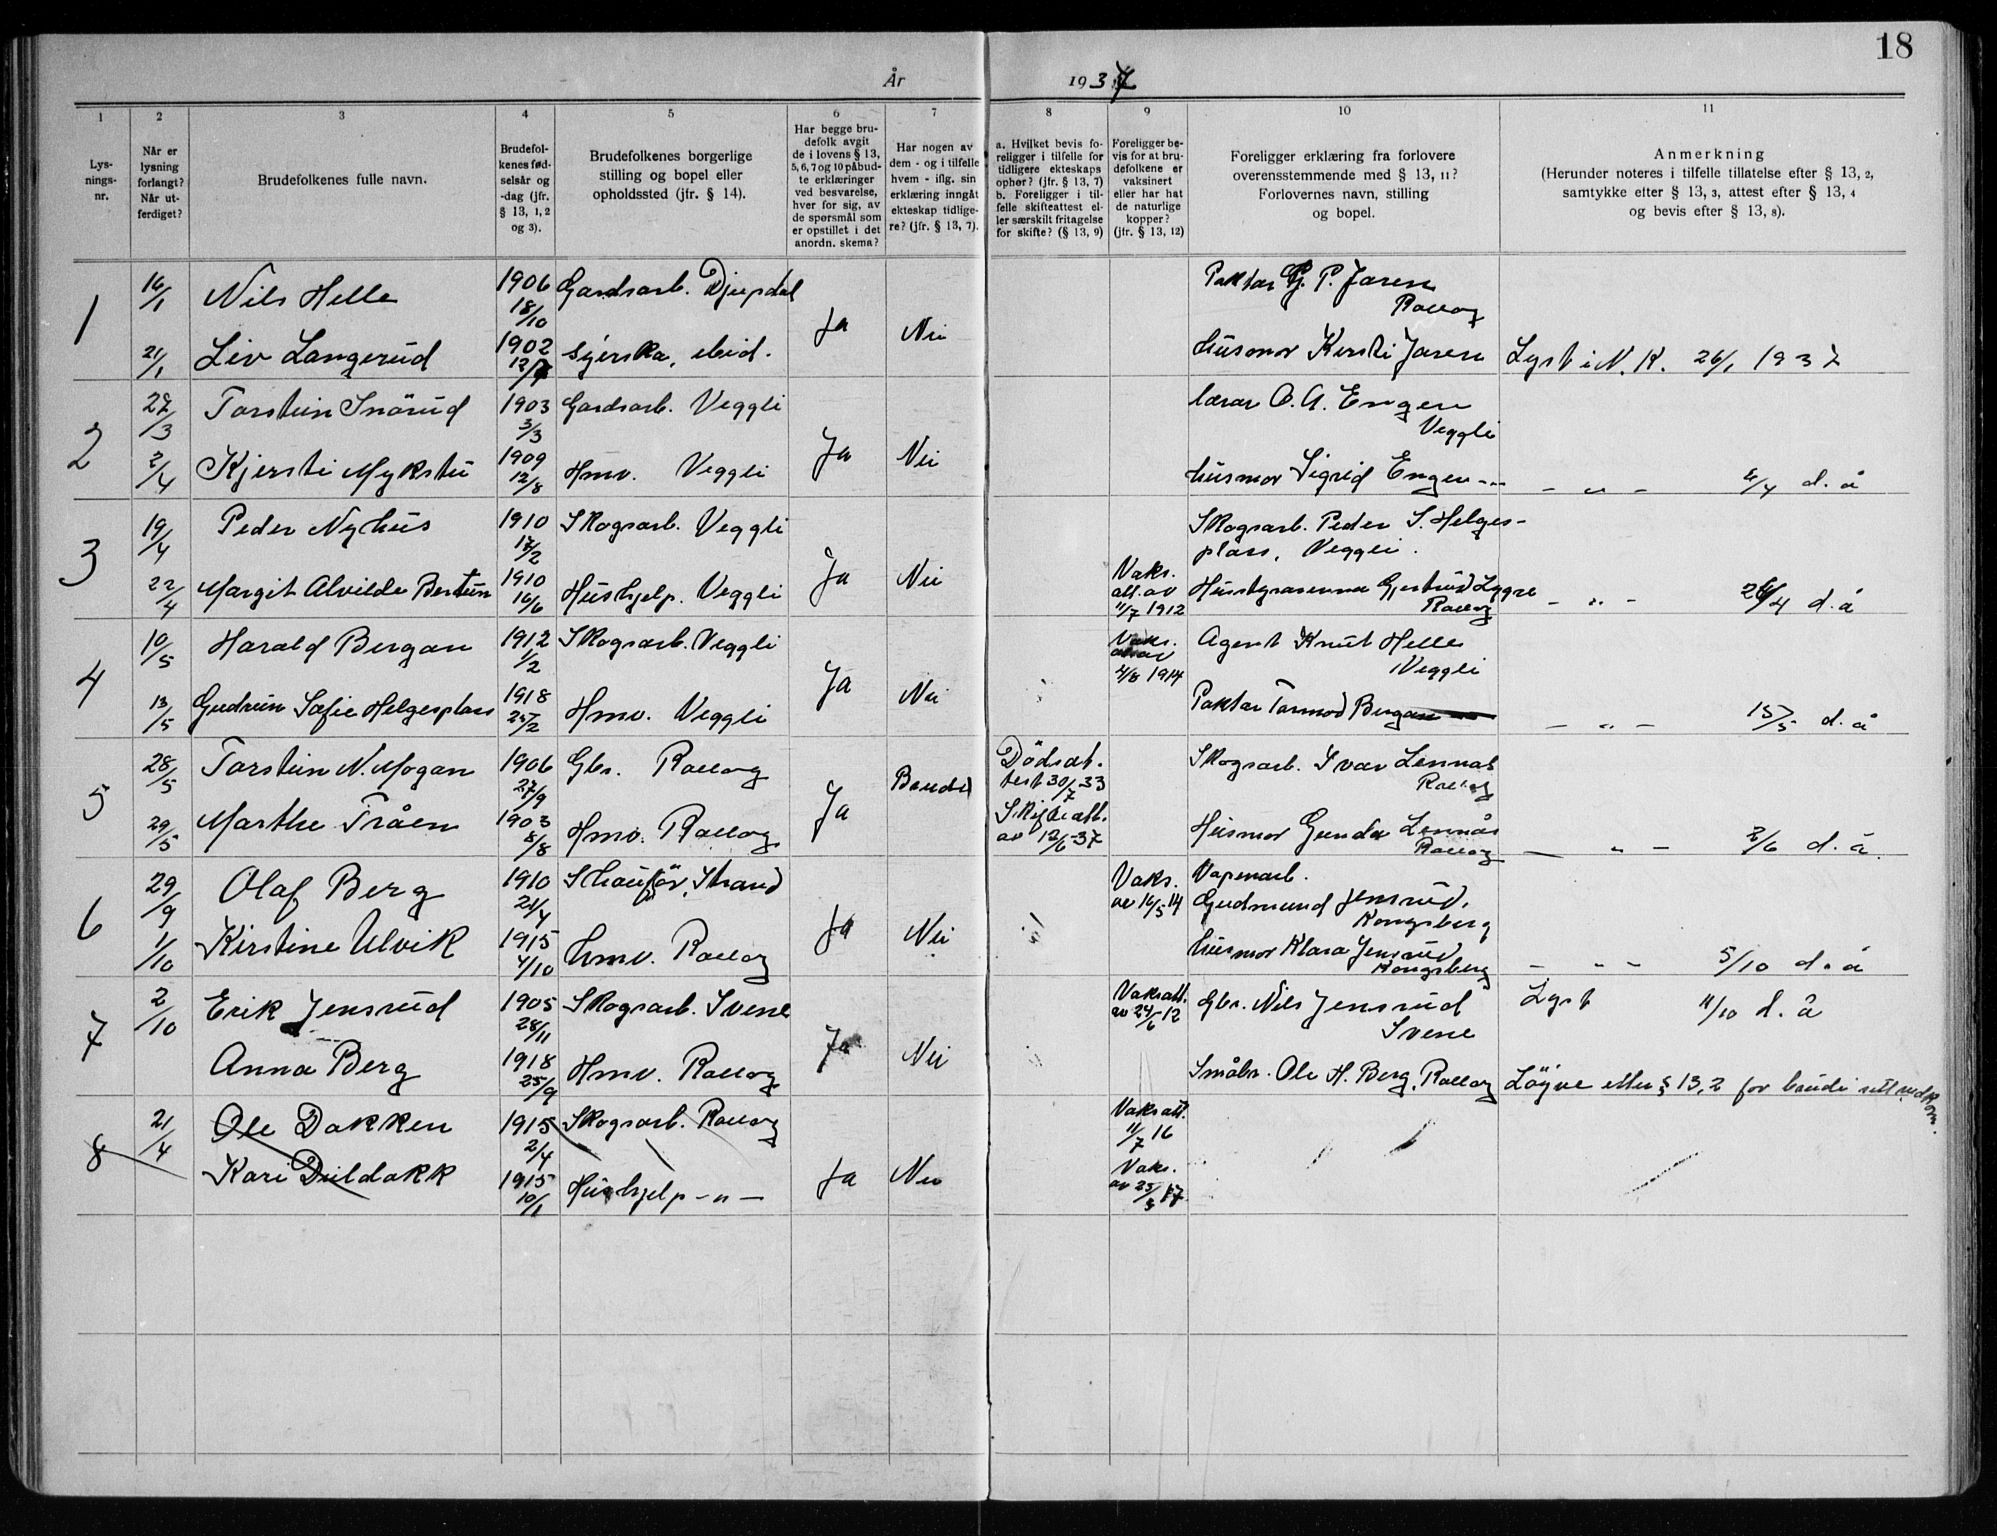 18
År 1937
1
2
3
4
5
6
7
8
9
10
11
Lys-
nings-
nr.
Når er
lysning
forlangt?
Når ut-
ferdiget?
Brudefolkenes fulle navn.
Brudefol-
kenes fød-
selsår og
-dag (jfr.
§ 13, 1, 2
og 3).
Brudefolkenes borgerlige
stilling og bopel eller
opholdssted (jfr. § 14).
Har begge bru-
defolk avgit
de i lovens § 13,
5, 6, 7 og 10 påbud-
te erklæringer
ved besvarelse,
hver for sig, av
de spørsmål som
er opstillet i det
anordn. skema?
Har nogen av
dem - og i tilfelle
hvem - iflg. sin
erklæring inngåt
ekteskap tidlige-
re? (jfr. § 13, 7).
a. Hvilket bevis fo-
religger i tilfelle for
tidligere ekteskaps
ophør? (jfr. § 13, 7)
b. Foreligger i til-
felle skifteattest el-
ler særskilt fritagelse
for skifte? (§ 13, 9)
Foreligger be-
vis for at bru-
defolkene er
vaksinert
eller har hat
de naturlige
kopper?
(jfr. § 13, 12)
Foreligger erklæring fra forlovere
overensstemmende med § 13, 11?
Forlovernes navn, stilling
og bopel.
Anmerkning
(Herunder noteres i tilfelle tillatelse efter § 13, 2,
samtykke efter § 13, 3, attest efter § 13, 4
og bevis efter § 13, 8).
1
16/1 Nils Helle 1906 18/10 Gardsarb. Djupdal Ja Nei Paktar P. Jaren
Rollag
21/1 Liv Langerud 1902 syerska, ibid. husmor Kersti Jaren Lyst i N. K. 26/1 1937
2
27/3 Torstein Snörud 1903 3/3 Gardsarb. Veggli Ja Nei lærar O. A. Engen
Veggli
2/4 Kjersti Mykstu 1909 12/8 Hmv. Veggli husmor Sigrid Engen -"- - " - 4/4 d. å
3
19/4 Peder Nyhus 1910 17/2 Skogsarb. Veggli Ja Nei Skogsarb. Peder S. Helges-
plass, Veggli.
22/4 Margit Alvilde Bertun 1910 16/6 Hushjelp. Veggli Vaks.
att. av
11/7 1912 Gjertrud Lygre
Rollag - " - 26/4 d. å
4
10/5 Harald Bergan 1912 1/2 Skogsarb. Veggli Ja Nei Vaks.
att av
4/8 1914 Agent Knut Helle
Veggli
13/5 Gudrun Sofie Helgesplass 1918 25/2 Hmv. Veggli Paktar Tormod Bergan - " - 15/5 d. å
5
28/5 Torstein N. Mogan 1906 27/9 Gbr. Rollag Ja Brudg Dödsat-
test 30/7-33
Skogsarb. Ivar Lennås
Rollag
29/5 Marthe Tråen 1903 8/8 Hmv. Rollag Skifteatt.
av 12/6-37 Husmor Gunda Lennås
Rollag - " - 2/6 d. å.
6
29/9 Olaf Berg 1910 21/4 Schauför, Strand Ja Nei Vaks.
av 16/5 14 Vapenarb.
Gudmund Jensrud,
Kongsberg
1/10 Kirstine Ulvik 1915 4/10 hmv. Rollag husmor Klara Jensrud
Kongsberg - " - 5/10 d. å
7
2/10 Erik Jensrud 1905 28/11 Skogsarb. Svene Ja Nei Vaksatt.
av 24/6-12 Gbr. Nils Jensrud
Svene Lyst 11/10 d. å
Anna Berg 1918 25/9 Hmv. Rollag Småbr. Ole H. Berg, Rollag Löyve etter § 13,2 for brudi
8
21/4 Ole Dokken 1915 2/4 Skogsarb. Rollag Ja Nei Vaksatt.
11/7 16
Kari Duldakk 1915 10/1 Hushjelp -"- Vaks.
av 25/5 17